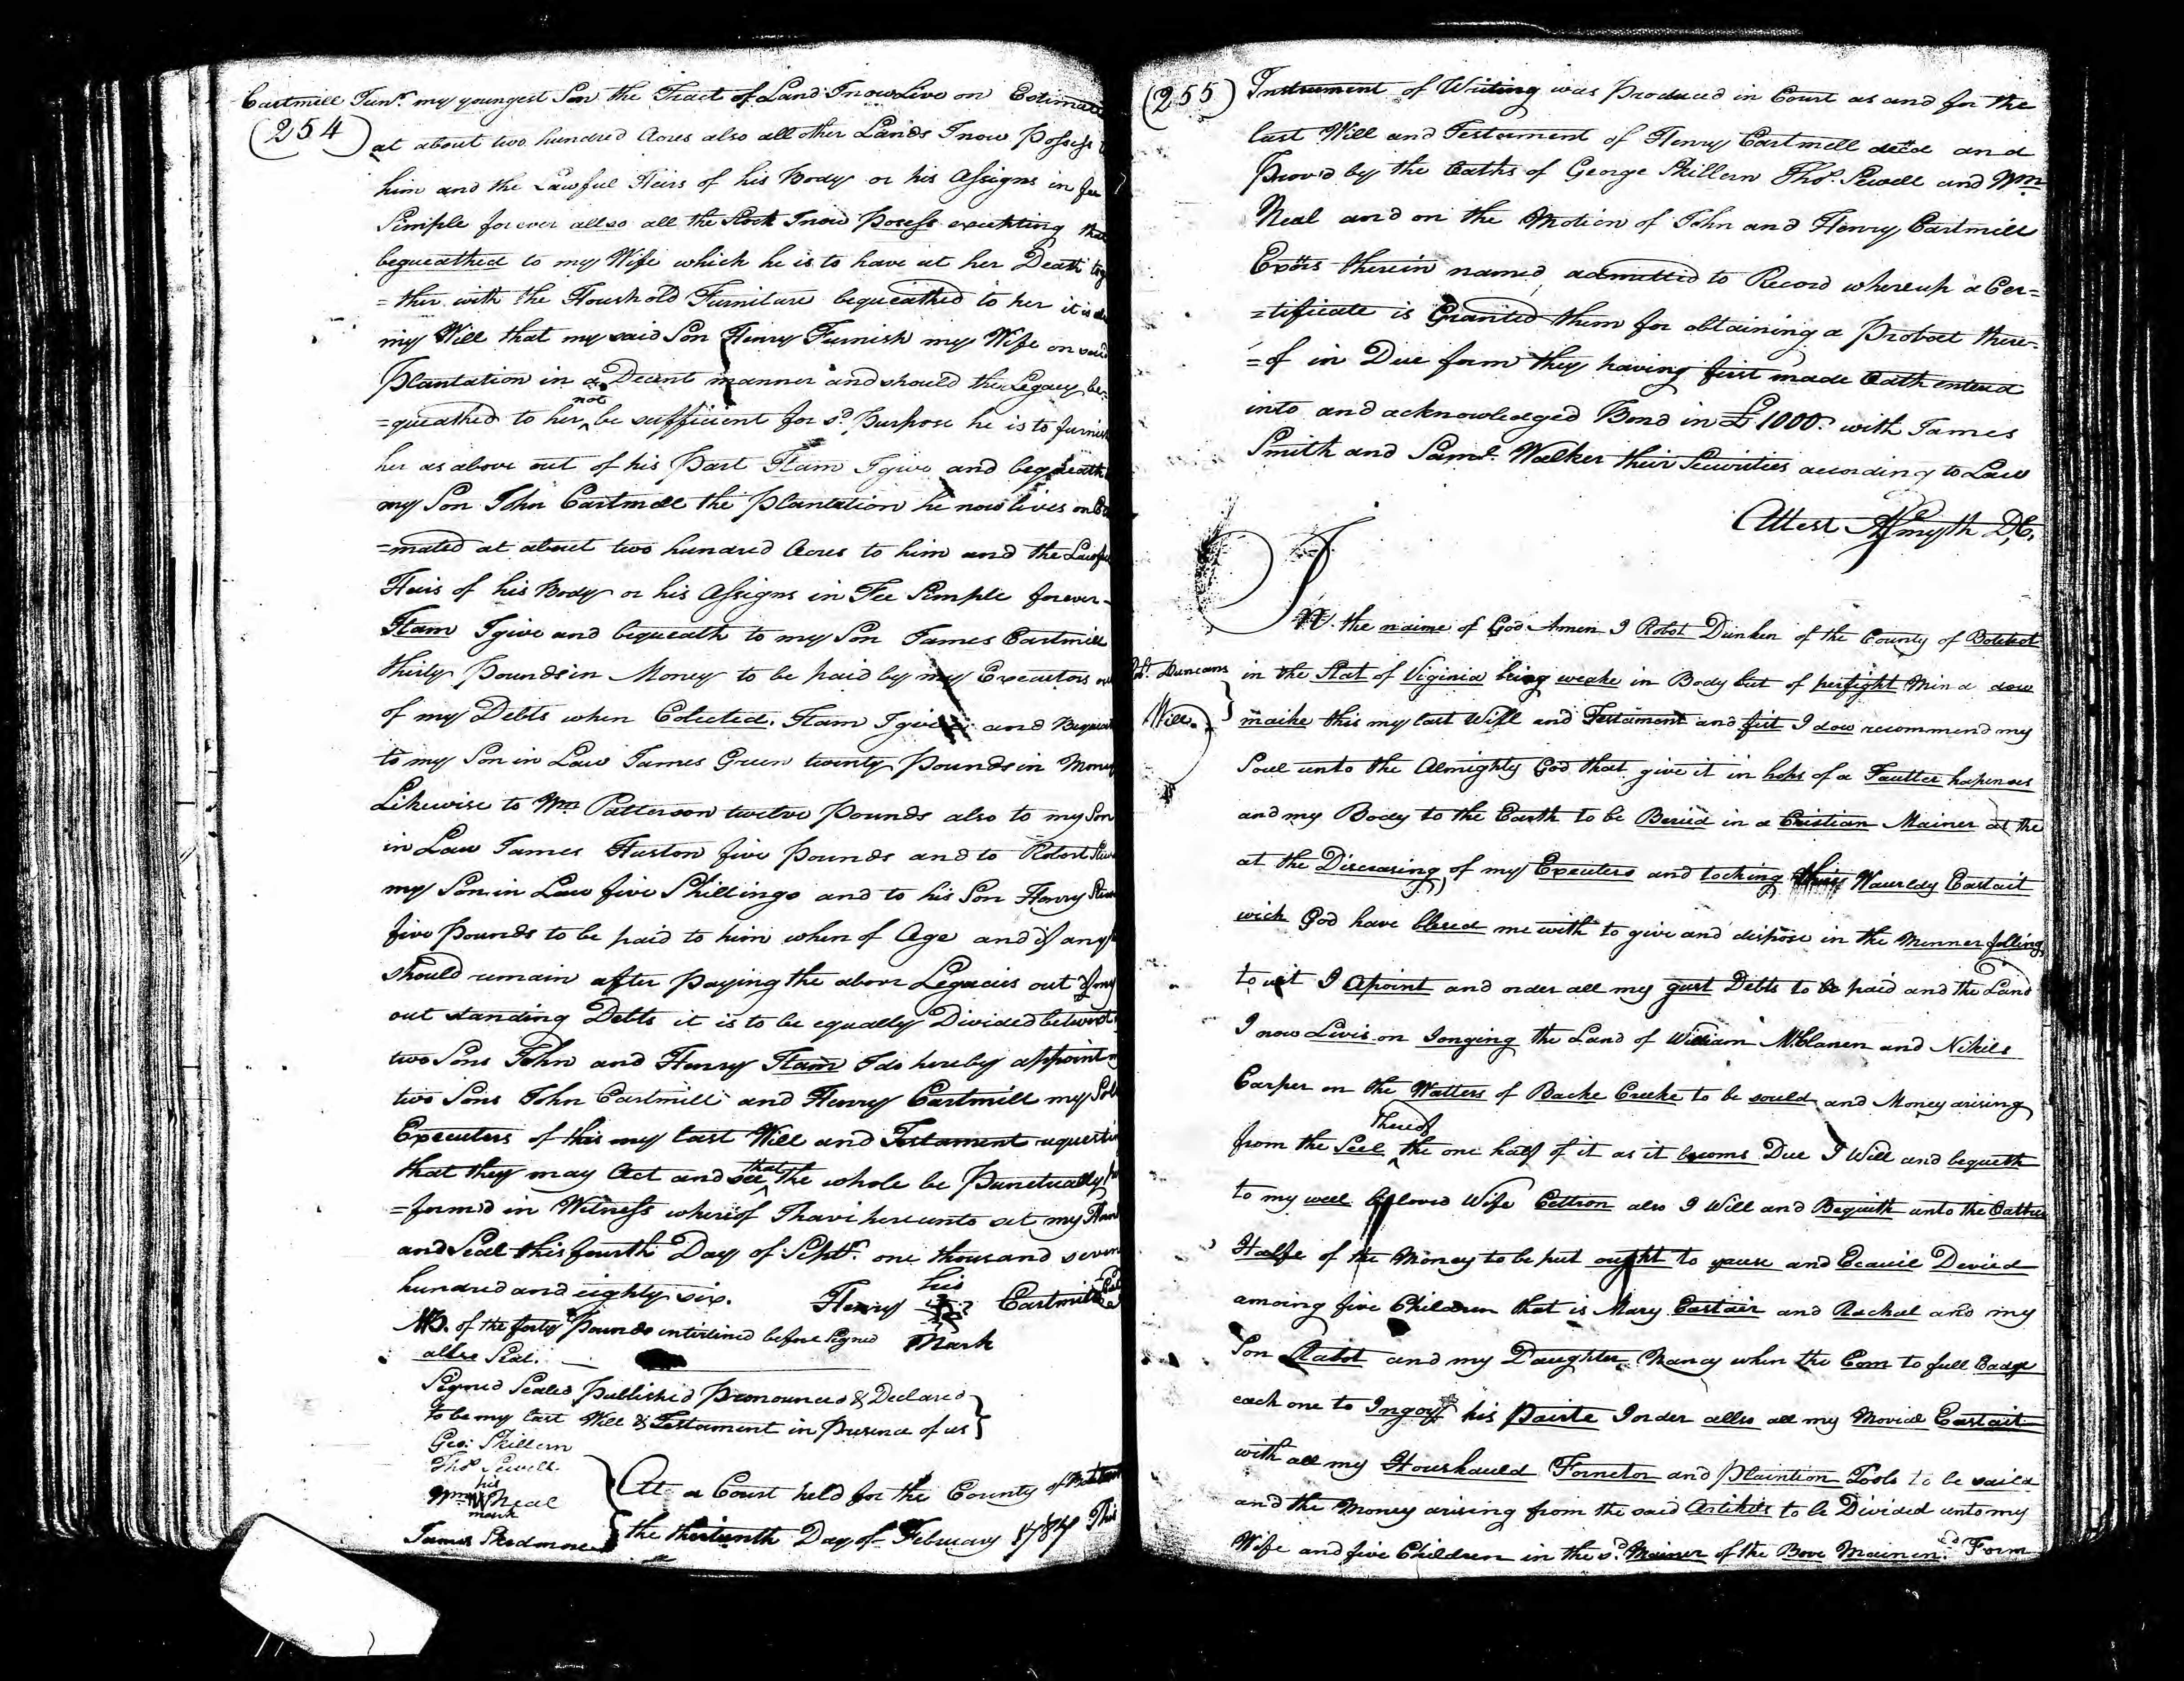 Cartmill Junr. my youngest Son the Tract of Land I now Live on Estimate
(254)
at about two hundred Acres also all other Lands I now Possess
him and the Lawful Heirs of his Body or his Assigns in fee
Simple forever allso all the Stock I now Posess excepting that
bequeathed to my Wife which he is to have at her Death tog
=ther with the Houshold Furniture bequeathed to her it is
my Will that my said Son Henry Furnish my Wife on said
Plantation in a Decent manner and should the Legacy be=
=queathed to her not be sufficient for sd. Purpose he is to furnish
her as above out of his Part Itam I give and bequeath
my Son John Cartmill the Plantation he now lives on
=mated at about two hundred Acres to him and the Lawful
Heirs of his Body or his Assigns in Fee Simple forever-
Itam I give and bequeath to my Son James Cartmill
thirty Pounds in Money to be paid by my Executors
of my Debts when Colected. Itam I give and Bequeat
to my Son in Law James Green twenty Pounds in Money
Likewise to Wm. Patterson twelve Pounds also to my Son
in Law James Huston five Pounds and to Robert
my Son in Law five Shillings and to his Son Henry
five Pounds to be paid to him when of Age and if any
should remain after Paying the above Legacies out of my
out standing Debts it is to be equally Divided betwixt
two Sons John and Henry Itam I do hereby appoint
two Sons John Cartmill and Henry Cartmill my Sole
Executers of this my last Will and Testament
that they may Act and see that the whole be Punctually
=form'd in Witness whereof I have hereunto set my Hand
and Seal this fourth Day of Septr. one thousand seven
hundred and eighty six. Henry his Cartmill
NB. of the forty Pounds interlined before Signed Mark
allso Seal.
Signed Sealed Published Pronounced & Declared
to be my last Will & Testament in Presence of us
Geo: Skillern
Thos. Sewell.
his
Wm. W Neal
mark
James Skidmore
At a Court held for the County of
the thirteenth Day of February 1787 This
(255)
Instrument of Writing was Produced in Court as and for the
last Will and Testament of Henry Cartmell decd. and
Prov'd by the Oaths of George Skillern Thos. Sewell and Wm.
Neal and on the Motion of John and Henry Cartmill
Exors therein named, admitted to Record whereup a Cer=
=tificate is Granted them for obtaining a Probat there=
=of in Due form they having first made Oath entered
into and acknowledged Bond in £1000. with James
Smith and Saml. Walker their Securities according to Law
Attest Smyth D.C.
Duncans
Will.
IN. the naime of God Amen I Robt Dunken of the County of Botetot
in the Stat of Viginia being weake in Body but of perfight Mind dow
maike this my last Will and Testament and fist I dow recommend my
Soul unto the Almighty God that give it in hops of a Fautter hapenes
and my Body to the Earth to be Beried in a Cristian Mainer at the
at the Discrasing of my Executers and toching Waurldy Eastait
wich God have blesed me with to give and dispose in the Menner folling
to wit I Apoint and order all my gust Debts to be paid and the Land
I now Livis on Ionging the Land of William McClanen and Nikils
Carper on the Watters of Backe Creeke to be sould and Money arising
from the Seel thereof the one half of it as it becoms Due I Will and bequeth
to my well beloved Wife Cettron also I Will and Bequith unto the
Halfe of the Money to be put ought to yause and Ecauil Devied
amoing five Children that is Mary Eastair and Rachal and my
Son Rabot and my Daughter Nancy when the Com to full Eadge
each one to Ingoy his Pairte I order allso all my Movial Eastait
with all my Houskauld Fornetor and Plaintion Tools to be saild
and the Money arising from the said Artikels to be Divided unto my
Wife and five Children in the sd. Mainer of the Bove Form